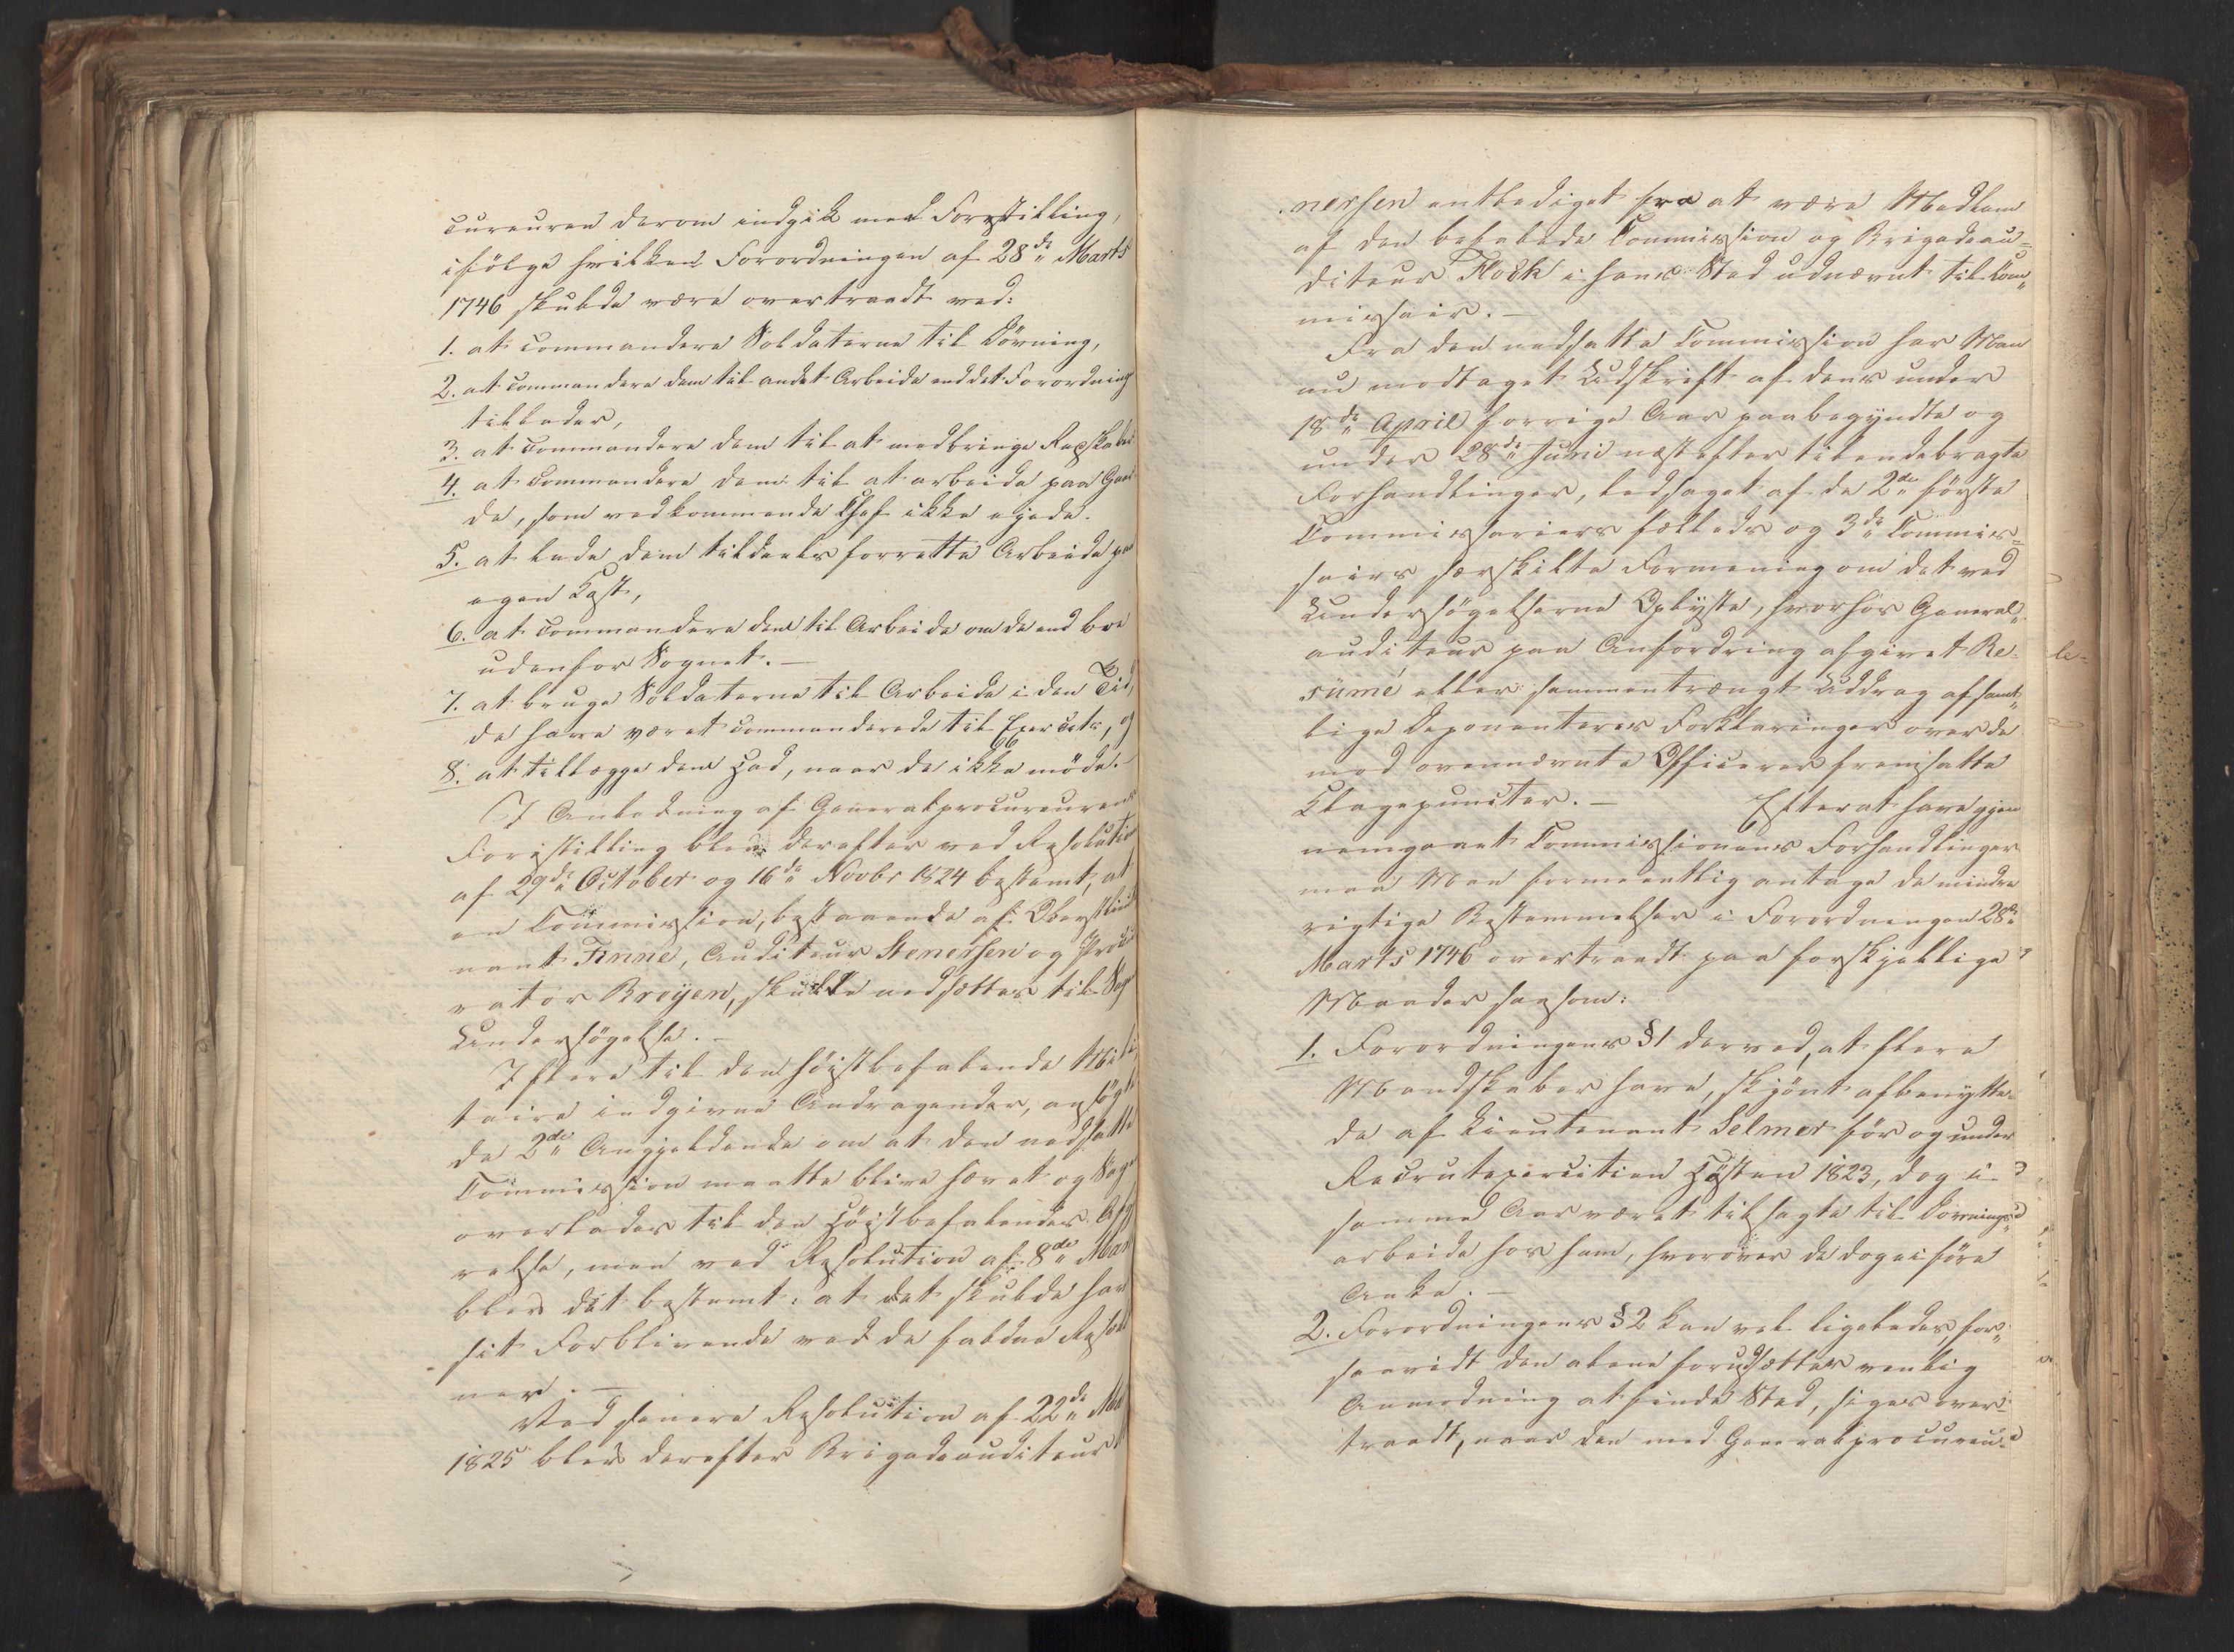 cureuren derom indgik med Forestilling,
ifölge hvilken Forordningen af 28de Marts
1746 skulde være overtraadt ved:
1. at commandere Soldaterne til Dövning,
2. at commandere dem til andet Arbeide end det Forordning
tillader,
3. at commandere dem til at medbringe Redskaber
4. at commandere dem til at arbeide paa Gaar-
de, som vedkommende Chef ikke ejede.
5. at lade dem tildeels forrette Arbeide paa
egen Kost,
6. at commandere dem til Arbeide om de end boe
udenfor Sognet. –
7. at bruge Soldaterne til Arbeide i den Tid,
de have været commanderede til Exercits, og
8. at tillægge dem Had, naar de ikke möde. –
I Anledning af Generalprocureurens
Forestilling blev derefter ved Resolution
af 29de October og 16de Novbr 1824 bestemt, at
en Commission, bestaaende af Oberstlieut
nant Finne, Auditeur Stenersen og Procu
rator Breyen, skulde nedsættes til Sagens
Undersögelse. –
I flere til den höistbefalende Mili
taire indgivne Andragender, ansögte
de 2de Angjeldende om at den nedsatte
Commission maatte blive hævet og Sagen
overlades til den Höistbefalendes Afgjö
relse, men ved Resolution af 8de Mar
blev det bestemt: at det skulde have
sit Forblivende ved de faldne Resolutio
ner. –
Ved senere Resolution af 22de
1825 blev derefter Brigadeauditeur
nersen entlediget fra at være Medlem
af den befalede Commission og Brigadeau-
diteur Flock i hans Sted udnævnt til Com-
missair. –
Fra den nedsatte Commission har Man
nu modtaget Udskrift af dens under
18de April forrige Aar paabegyndte og
under 28de Juni næstefter tilendebragte
Forhandlinger, ledsaget af de 2de förste
Commissariers fælleds og 3de Commis-
sairs særskilte Formening om det ved
Undersögelserne Oplyste, hvorhos General-
auditeur paa Anfordring afgivet Re-
sümé eller sammentrængt Uddrag af samt-
lige Deponenteres Forklaringer over de
mod ovennævnte Officerer fremsatte
Klagepuncter. – Efter at have gjen
nemgaaet Commissionens Forhandlinger
maa Man formeentlig antage de mindre
vigtige Bestemmelser i Forordningen 28de
Marts 1746 overtraadt paa forskjellige
Maader saasom:
1. Forordningens §1 derved, at flere
Mandskaber have, skjönt afbenytte-
de af Lieutenant Selmer för og under
Recrutexercitien Hösten 1823, dog i
samme Aar været tilsagte til Dövnings-
arbeide hos ham, hvorover de dog ei före
Anke. –
2. Forordningens §2 kan vel ligeledes, for-
saavidt den alene forudsætter venlig
Anmodning at finde Sted, siges over-
traadt, naar den med Generalprocureu-